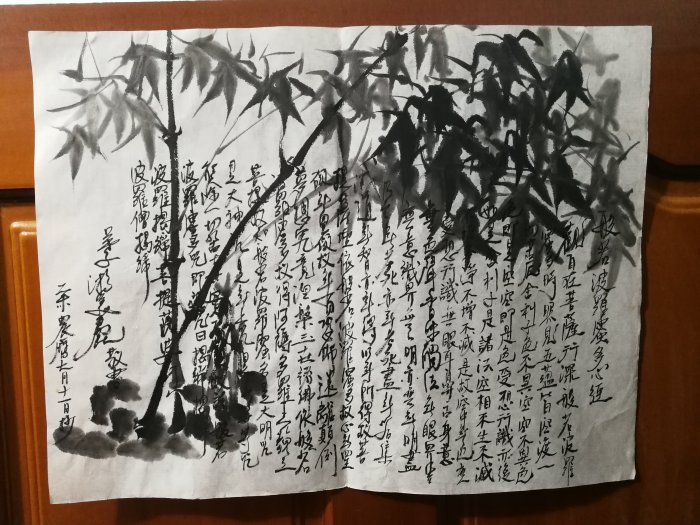 般若波羅蜜多心經
觀自在菩薩行深般若波羅
蜜多時照見五蘊皆空度一
切苦厄舍利子色不異空空不異色
色即是空空即是色受想行識亦復
如是舍利子是諸法空相不生不滅
不增不減是故空中無色無
受想行識無眼耳鼻舌身意
無色聲香味觸法無眼界乃至
無意識界無無明亦無無明盡
乃至無老死亦無老死盡無苦集
滅道無智亦無得以無所得故菩
提薩埵依般若波羅蜜多故心無罣
礙無罣礙故無有恐怖遠離顛倒
夢想究竟涅槃三世諸佛依般若
波羅蜜多故得阿耨多羅三藐三
菩提故知般若波羅蜜多是大明咒
是大神咒
能除一切苦
波羅蜜多咒即說咒曰揭諦
波羅揭諦菩提薩婆
波羅僧揭諦
敬書
農曆七月十一日抄